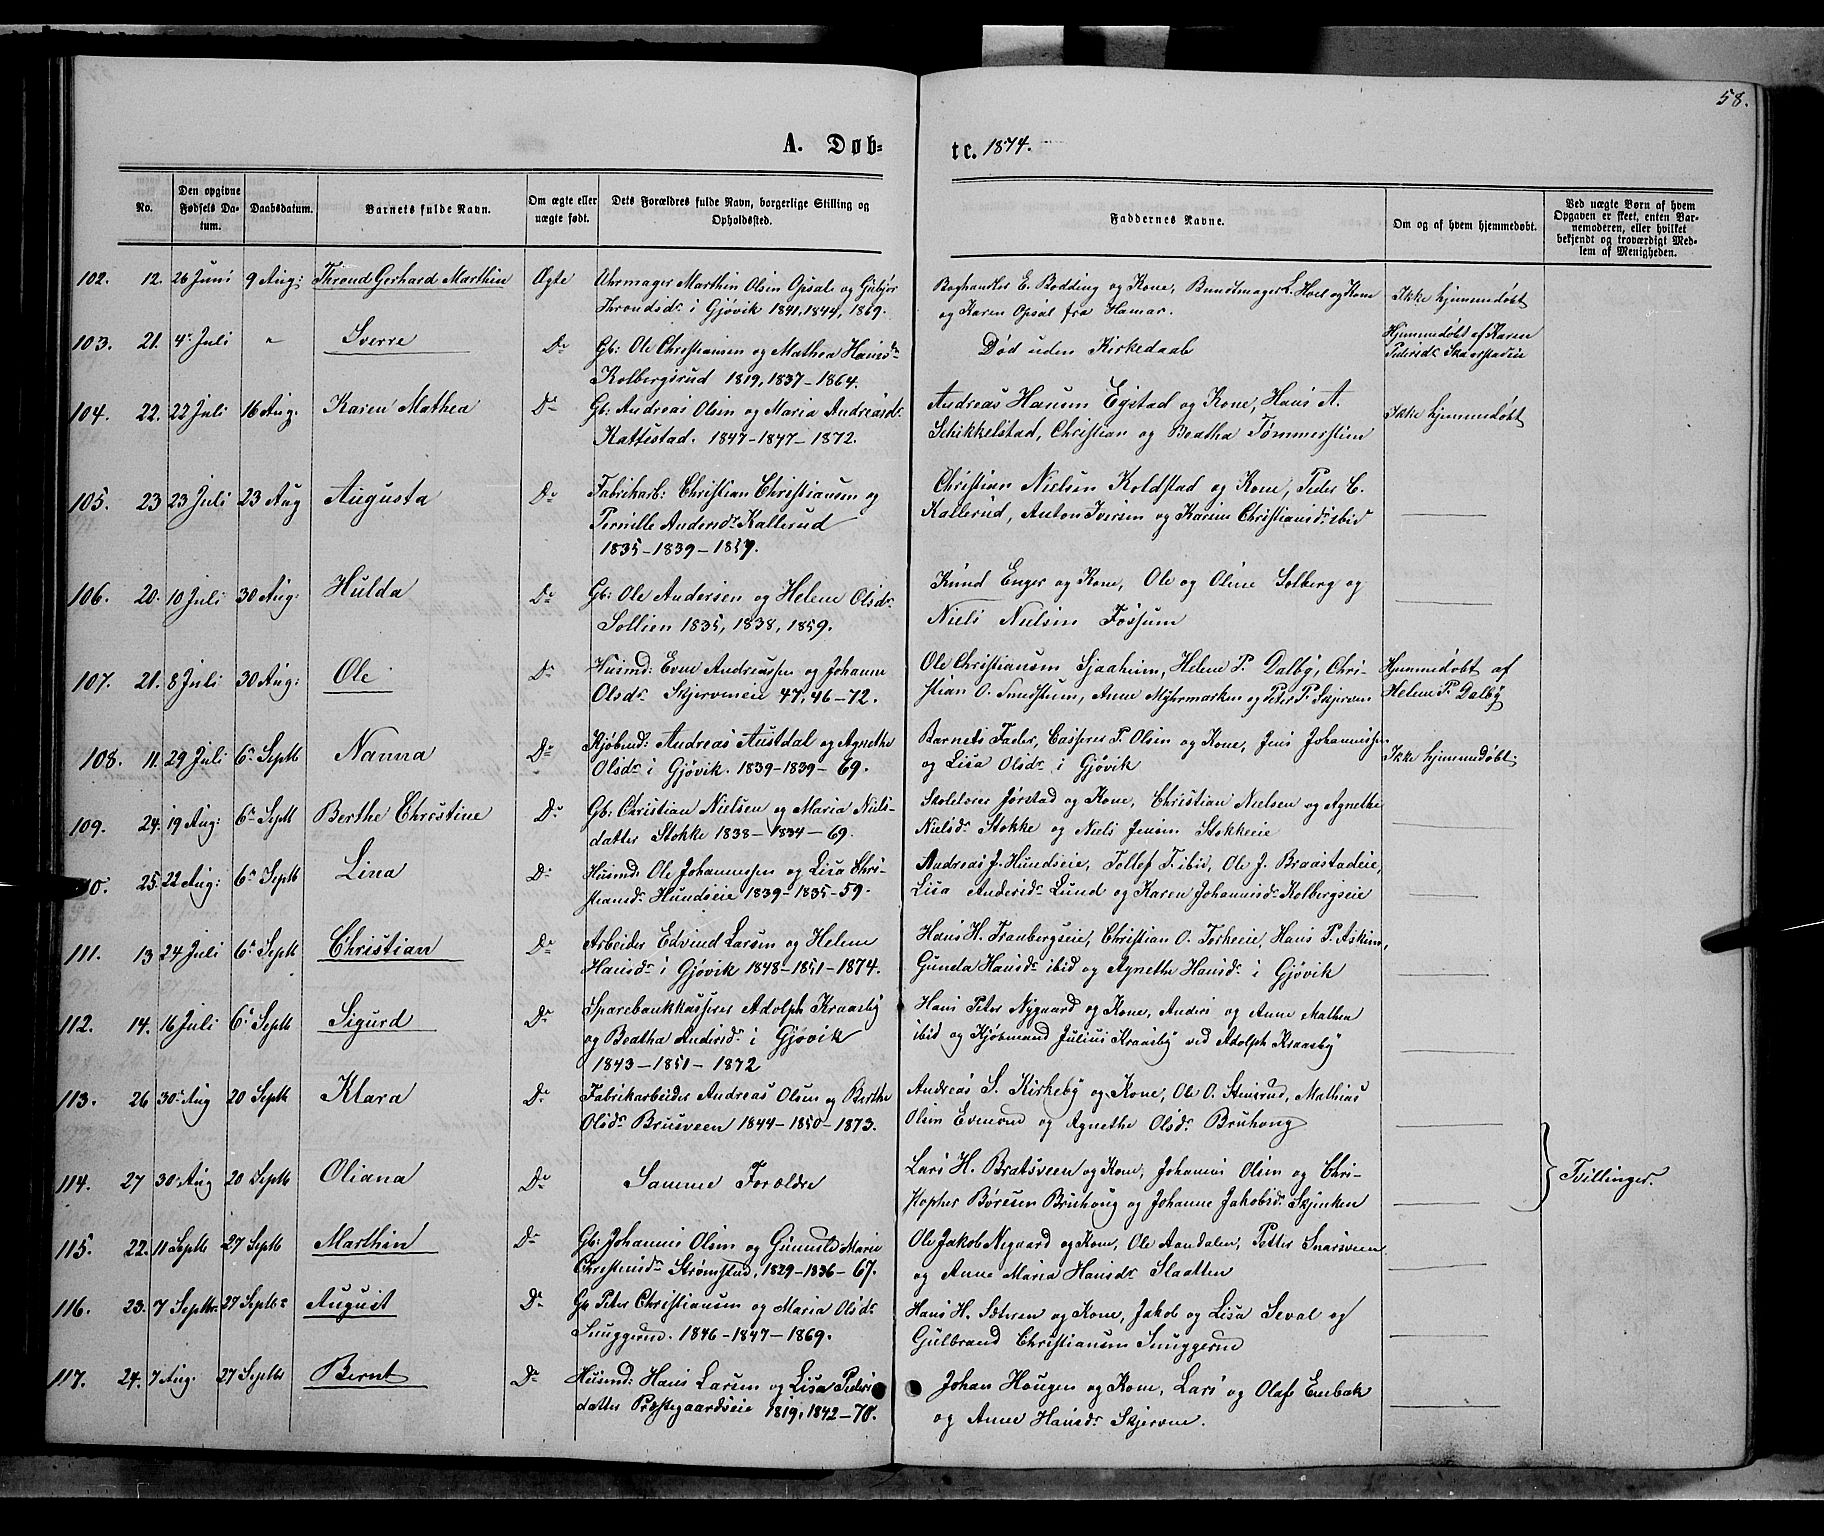 58.
A. Døb-
te. 1874.
No.
Den opgivne Fødsels Da-tum.
Daabsdatum.
Barnets fulde Navn.
Om ægte eller uægte født.
Dets Forældres fulde Navn, borgerlige Stilling og Opholdssted.
Faddernes Navne.
Om og af hvem hjemmedøbt.
Ved uægte Børn af hvem Opgaven er skeet, enten Bar-nemoderen, eller hvilket bekjendt og troværdigt Med-lem af Menigheden.
102. 12. 26 Juni 9 Aug: Throud Gerhard Marthin Ægte Uhrmager Marthin Olsen Opsal og Gubjør
Throndsdr i Gjøvik 1841, 1844, 1869.
Boghandler E. Bodding og Kone, Bundtmager L. Hoel og Kone
og Karen Opsal fra Hamar.
Ikke hjemmedøbt
103. 21. 4de Juli " Sverre Do Gb: Ole Christiansen og Mathea Hansdr
Kolbergsrud 1819, 1837-1864.
Død uden Kirkedaab
Hjemmedøbt af Karen
Pedersdr Skaerstadeie
104. 22. 22 Juli 16 Aug: Karen Mathea Do Gb: Andreas Olsen og Maria Andreasdr
Kattestad. 1847-1847-1872.
Andreas Hansen Egstad og Kone, Hans A.
Schikkelstad, Christian og Beatha Tømmerstuen
Ikke hjemmedøbt
105. 23 23 Juli 23 Aug Augusta Do Fabrikarb: Christian Christiansen og
Pernille Andersdr Kallerud
1835-1839-1859.
Christian Nielsen Koldstad og Kone, Peder C.
Kallerud, Anton Iversen og Karine Christiansdr ibid
106. 20. 10 Juli 30 Aug: Hulda Do Gb: Ole Andersen og Helene Olsdr
Sollien 1835, 1838, 1859.
Knud Enger og Kone, Ole og Oline Solberg og
Niels Nielsen Fossum
107. 21. 8 Juli 30 Aug: Ole Do Husmd: Even Andreassen og Johanne
Olsdr Skjerveneie 47, 46-72.
Ole Christiansen Sjaaheim, Helene P. Dalby, Chri-
stian O. Smedstuen, Anne Myhrmarken og Peter P. Skjerven
Hjemmedøbt af
Helene P. Dalby
108. 11. 29 Juli 6te Septb Nanna Do Kjøbmd: Andreas Austdal og Agnethe
Olsdr i Gjøvik. 1839-1839-69.
Barnets Fader, Casserer P. Olsen og Kone, Jens Johannessen
og Lisa Olsdr i Gjøvik
Ikke hjemmedøbt.
109. 24. 19 Aug: 6te Septb Berthe Christine Do Gb: Christian Nielsen og Maria Niels-
datter Stokke 1838-1834-69.
Skolelærer Jørstad og Kone, Christian Nielsen og Agnethe
Nielsdr Stokke og Niels Jensen Stokkeeie
110. 25. 22 Aug: 6te Septb Lina Do Husmd: Ole Johannessen og Lisa Chri-
stiansdr Hundseie 1839-1835-59.
Andreas J. Hundseie, Tollef T. ibid, Ole J. Braastadeie,
Lisa Andersdr Lund og Karen Johannesdr Kolbergseie
111. 13 24 Juli 6te Septb Christian Do Arbeider Edvind Larsen og Helene
Hansdr i Gjøvik 1848-1851-1874.
Hans H. Tranbergseie, Christian O. Torkeeie, Hans P. Askim,
Gunda Hansdr ibid og Agnethe Hansdr i Gjøvik
112. 14. 16 Juli 6te Septb Sigurd Do Sparebankkasserer Adolph Kraasby
og Beatha Andersdr i Gjøvik
1843-1851-1872
Hans Peter Nygaard og Kone, Anders og Anne Mathea
ibid og Kjøbmand Julius Kraasby ved Adolph Kraasby
113. 26 30te Aug 20 Septb Klara Do Fabrikarbeider Andreas Olsen og Berthe
Olsdr Brusveen 1844-1850-1873.
Andreas S. Kirkeby og Kone, Ole O. Stensrud, Mathias
Olsen Evenrud og Agnethe Olsdr Bruhoug
114. 27 30te Aug 20 Septb Oliana Do Samme Forældre
Lars H. Bratsveen og Kone, Johannes Olsen og Chri-
stopher Børesen Bruhoug og Johanne Jakobsdr Skjenken
Tvillinger.
115. 22. 11 Septb 27 Septb Marthin Do Gb: Johannes Olsen og Gunnild Marie
Christensdr Strømstad, 1829-1836-67.
Ole Jakob Negaard og Kone, Ole Aandalen, Petter Snarsveen
og Anne Maria Hansdr Slaatten
116. 23. 7 Septbr. 27 Septbr August Do Gb Peter Christiansen og Maria Olsdr
Snuggerud. 1846-1847-1869.
Hans H. Sæteren og Kone, Jakob og Lisa Seval og
Gulbrand Christiansen Snuggerud
117. 24. 7 Aug: 27 Septbr Bernt Do Husmd: Hans Larsen og Lisa Peders
datter Præstegaardseie 1819, 1842-70.
Johan Hougen og Kone, Lars og Olaf Enebak
og Anne Hansdr Skjerven.